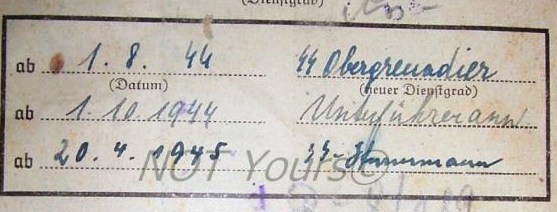 (Dienstgrad)
ab 1. 8. 44 SS Obergrenadier
(Datum) (neuer Dienstgrad)
ab 1.10.1944 Unterführeranw
ab 20.4.1945 SS-Sturmmann
NOT Yours©